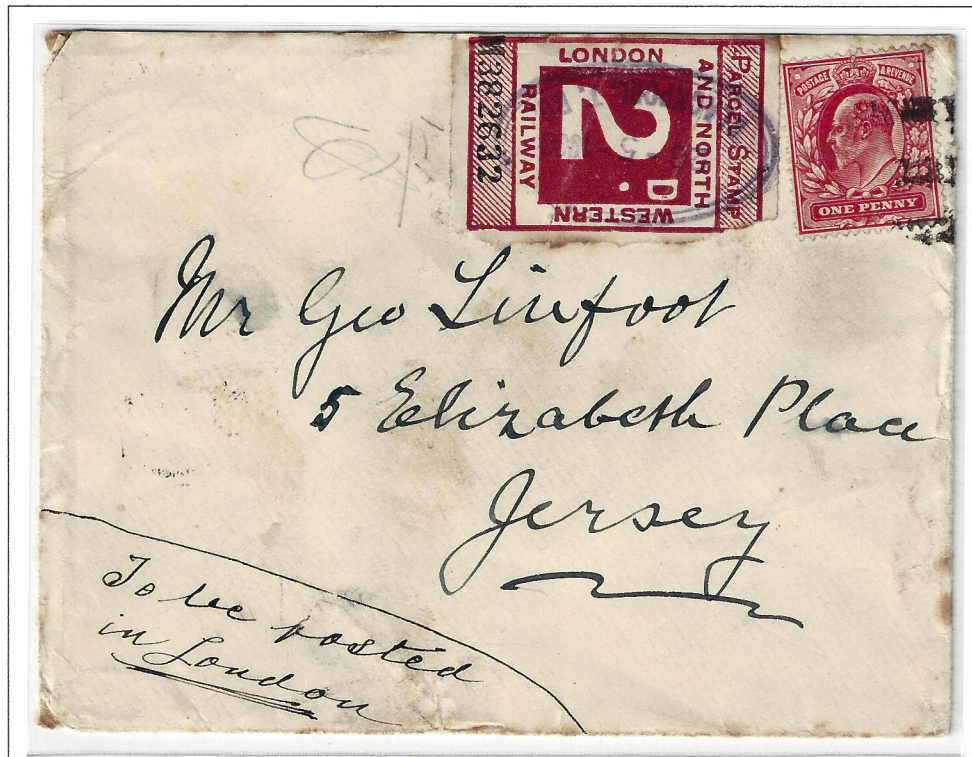 LONDON
AND NORTH
WESTERN
RAILWAY
2D.
PARCEL STAMP
M382632
POSTAGE & REVENUE
ONE PENNY
Mr Geo Linfoot
5 Elizabeth Place
Jersey
To be posted
in London